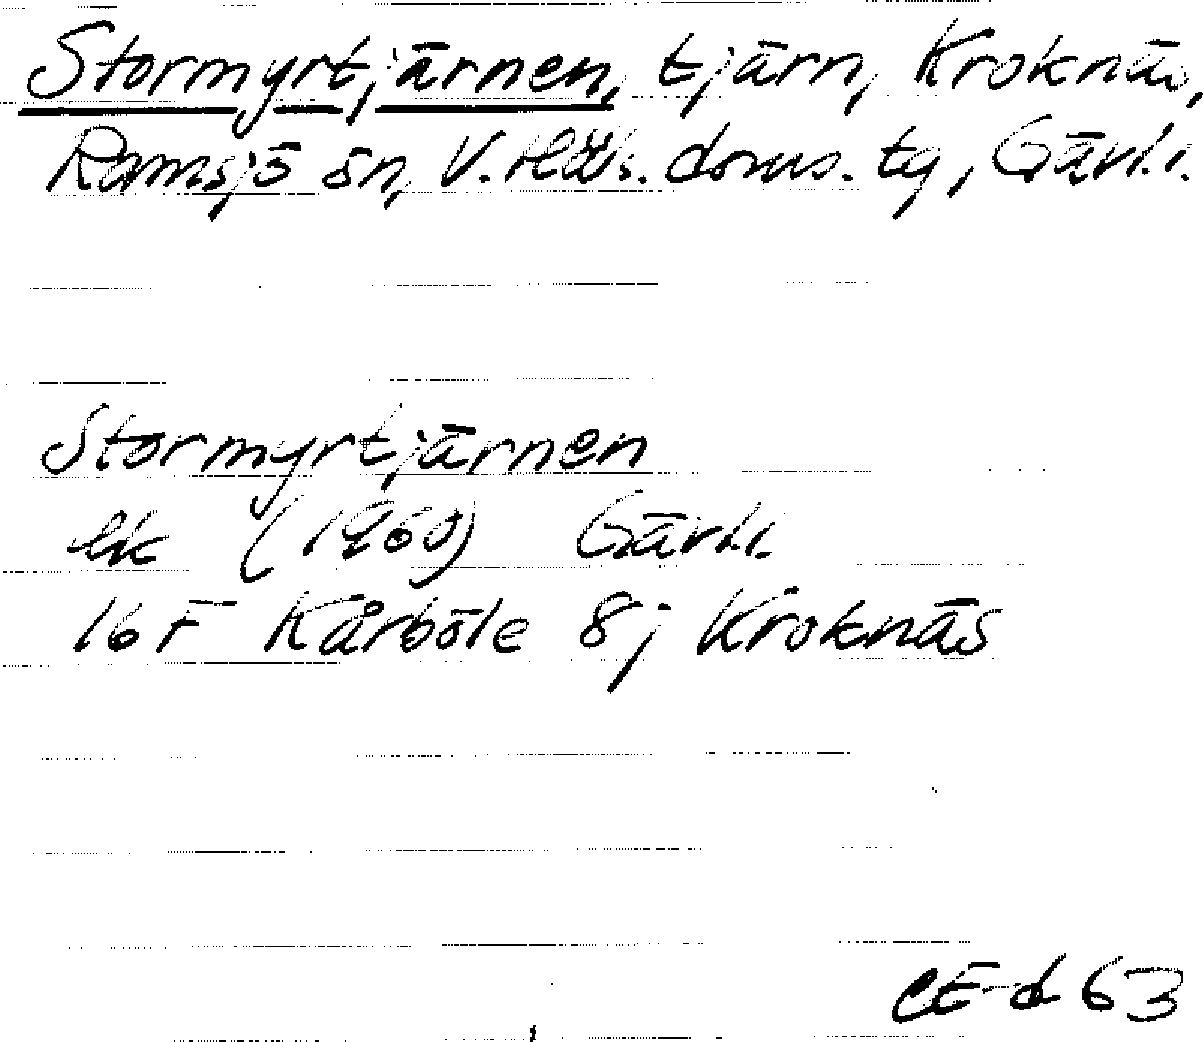 Stormyrtjärnen, tjärn, Kroknäs,
Ramsjö sn, V. Häls. doms. tg, Gävl.l.
Stormyrtjärnen
ek (1960) Gävl.l.
16 F Kårböle 8j Kroknäs
CE-d 63